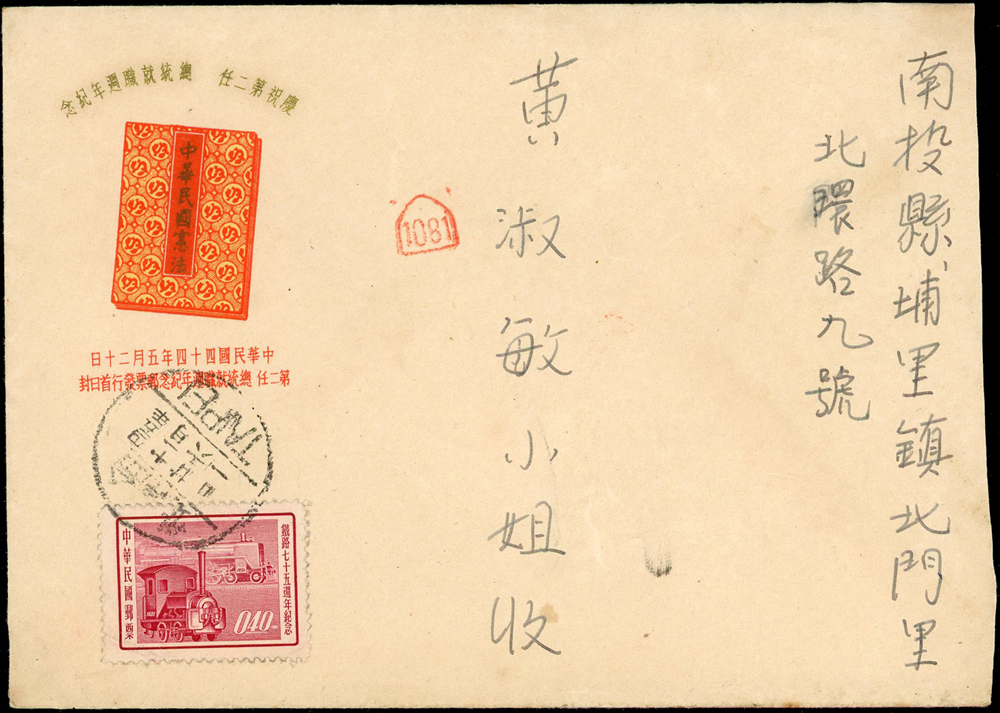 南投縣埔里鎮北門里
北環路九號
黃淑敏小姐收
1081
慶祝第二任 總統就職週年紀念
中華民國憲法
中華民國四十四年五月二十日
第二任 總統就職週年紀念郵票發行首日封
TAIPEI
鐵路七十五週年紀念
中華民國郵票
040